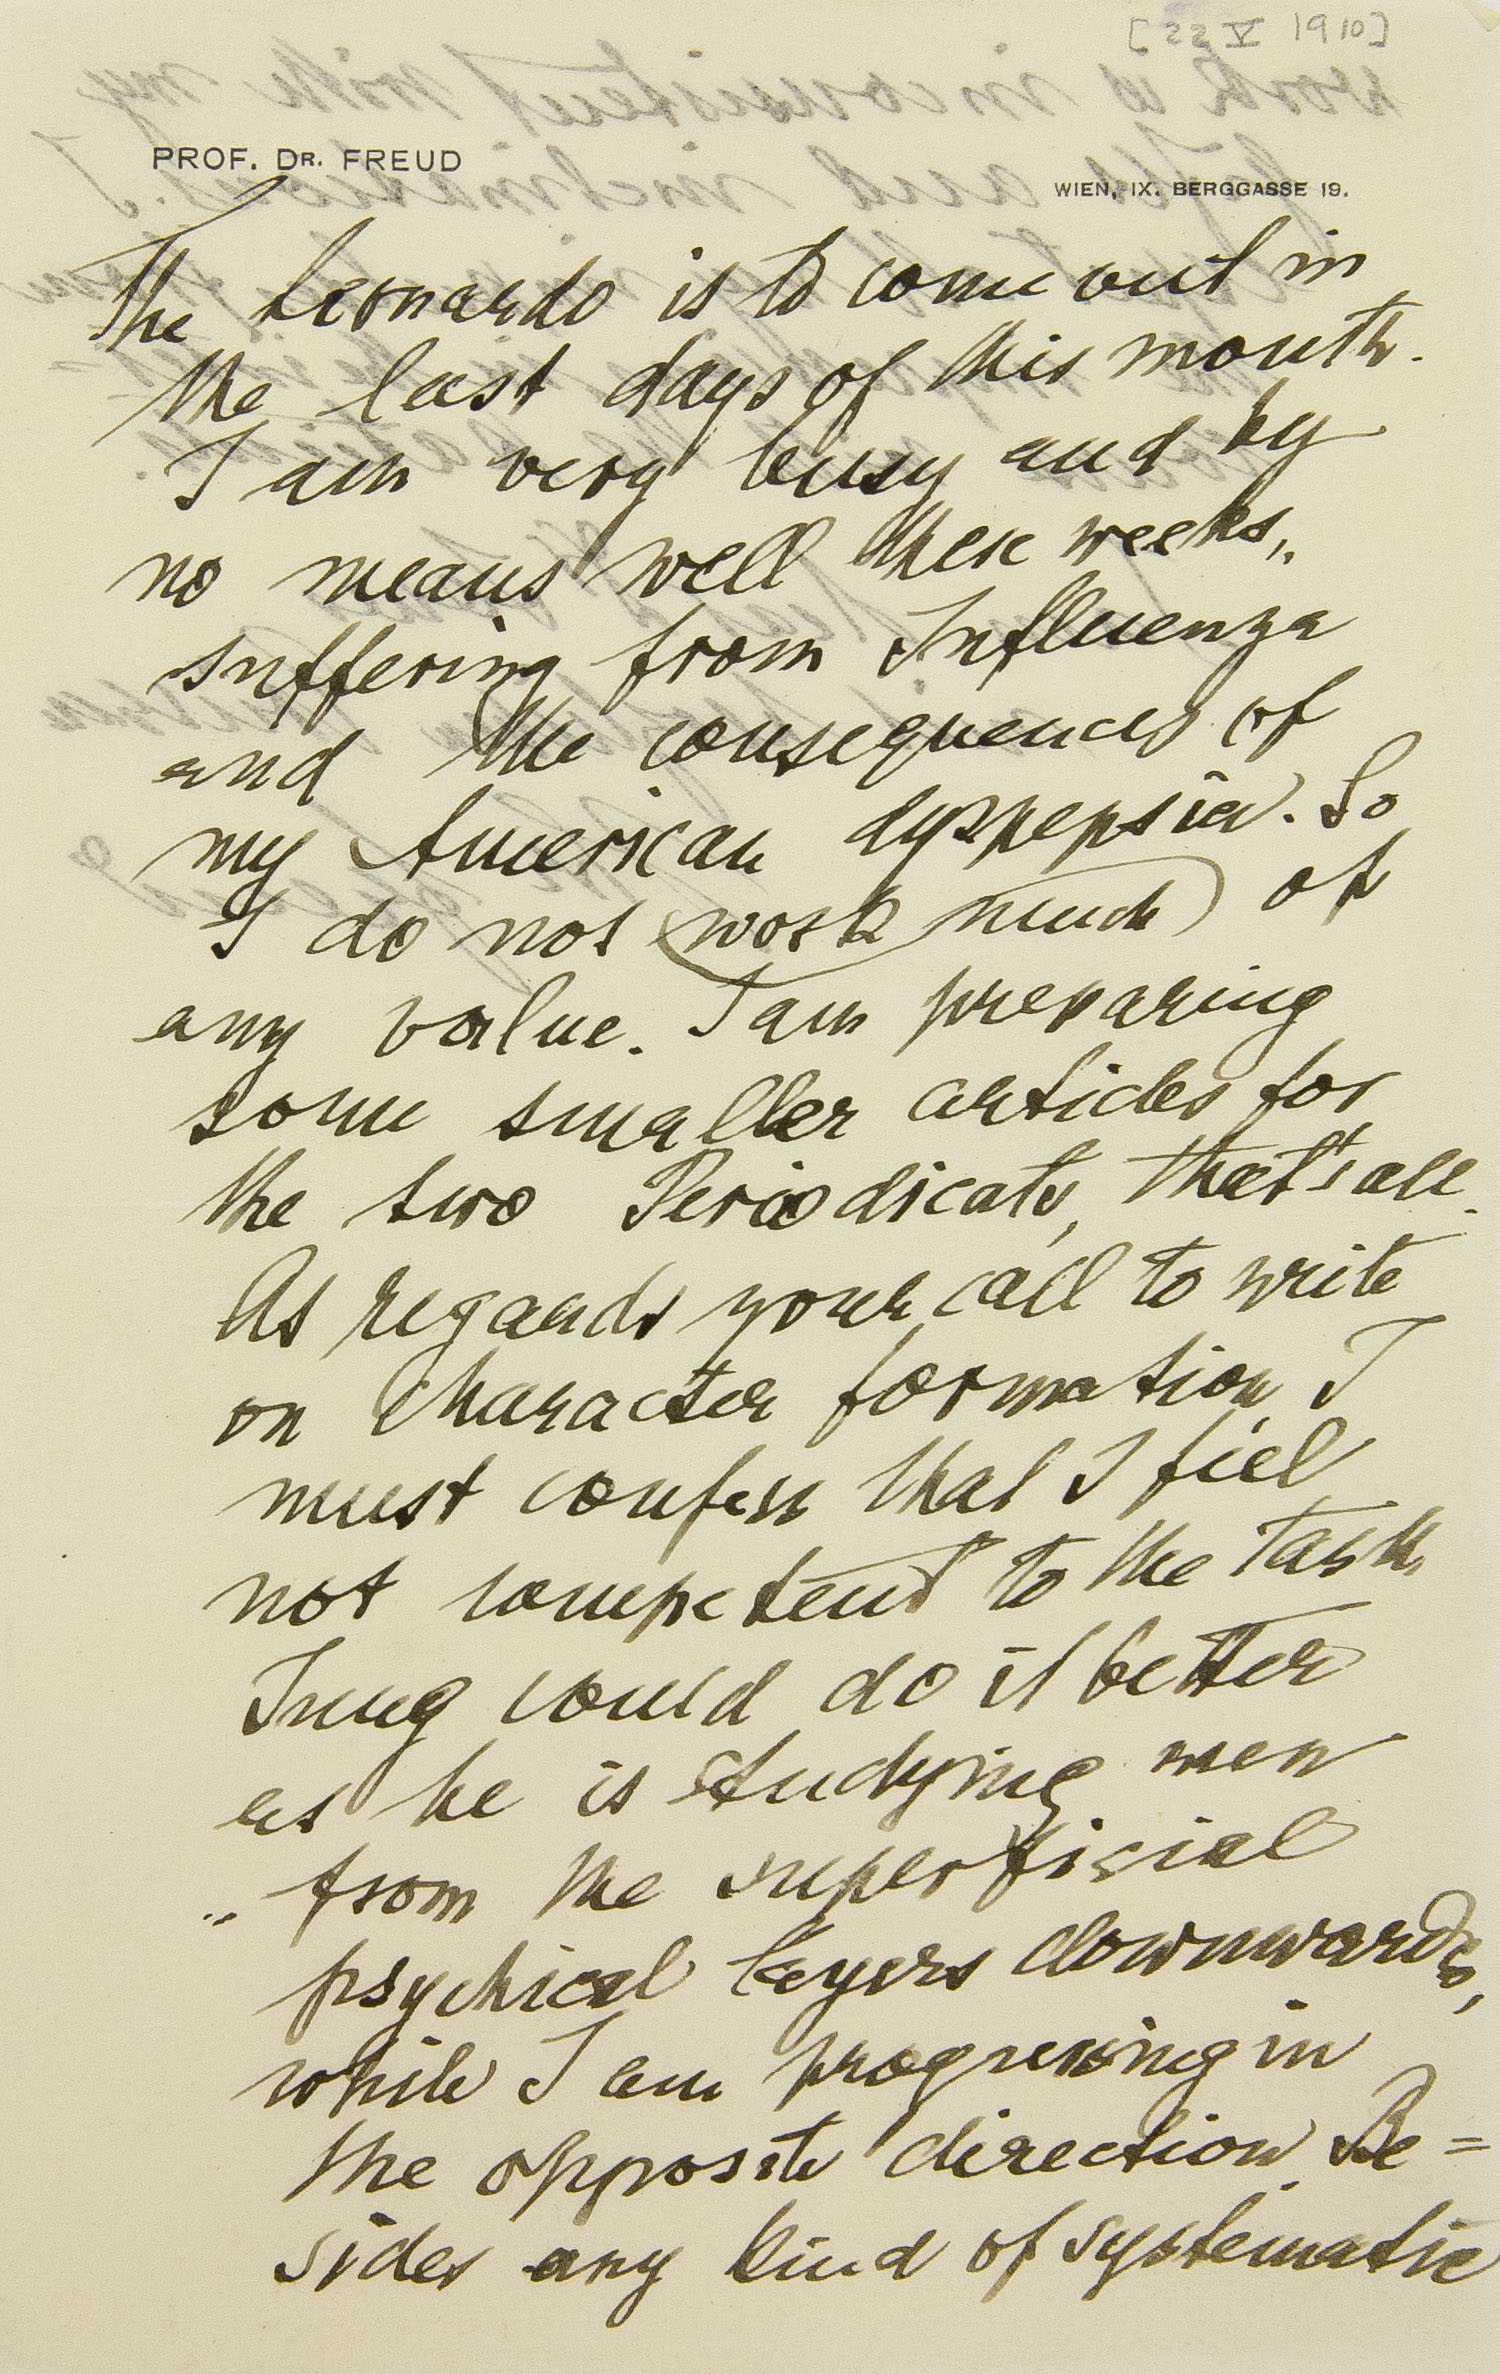 [22 V 1910]
PROF. DR. FREUD
WIEN, IX. BERGGASSE 19.
The Leonardo is to come out in
the last days of this month.
I am very busy and by
no means well these weeks,
suffering from Influenza
and the consequences of
my American dyspepsia. So
I do not (work much) of
any value. I am preparing
some smaller articles for
the two Periodicals, that's all.
As regards your call to write
on Character formation, I
must confess that I feel
not competent to the task.
Jung could do it better
as he is studying men
from the superficial
psychical layers downwards,
while I am progressing in
the opposite direction. Be=
sides any kind of systematic